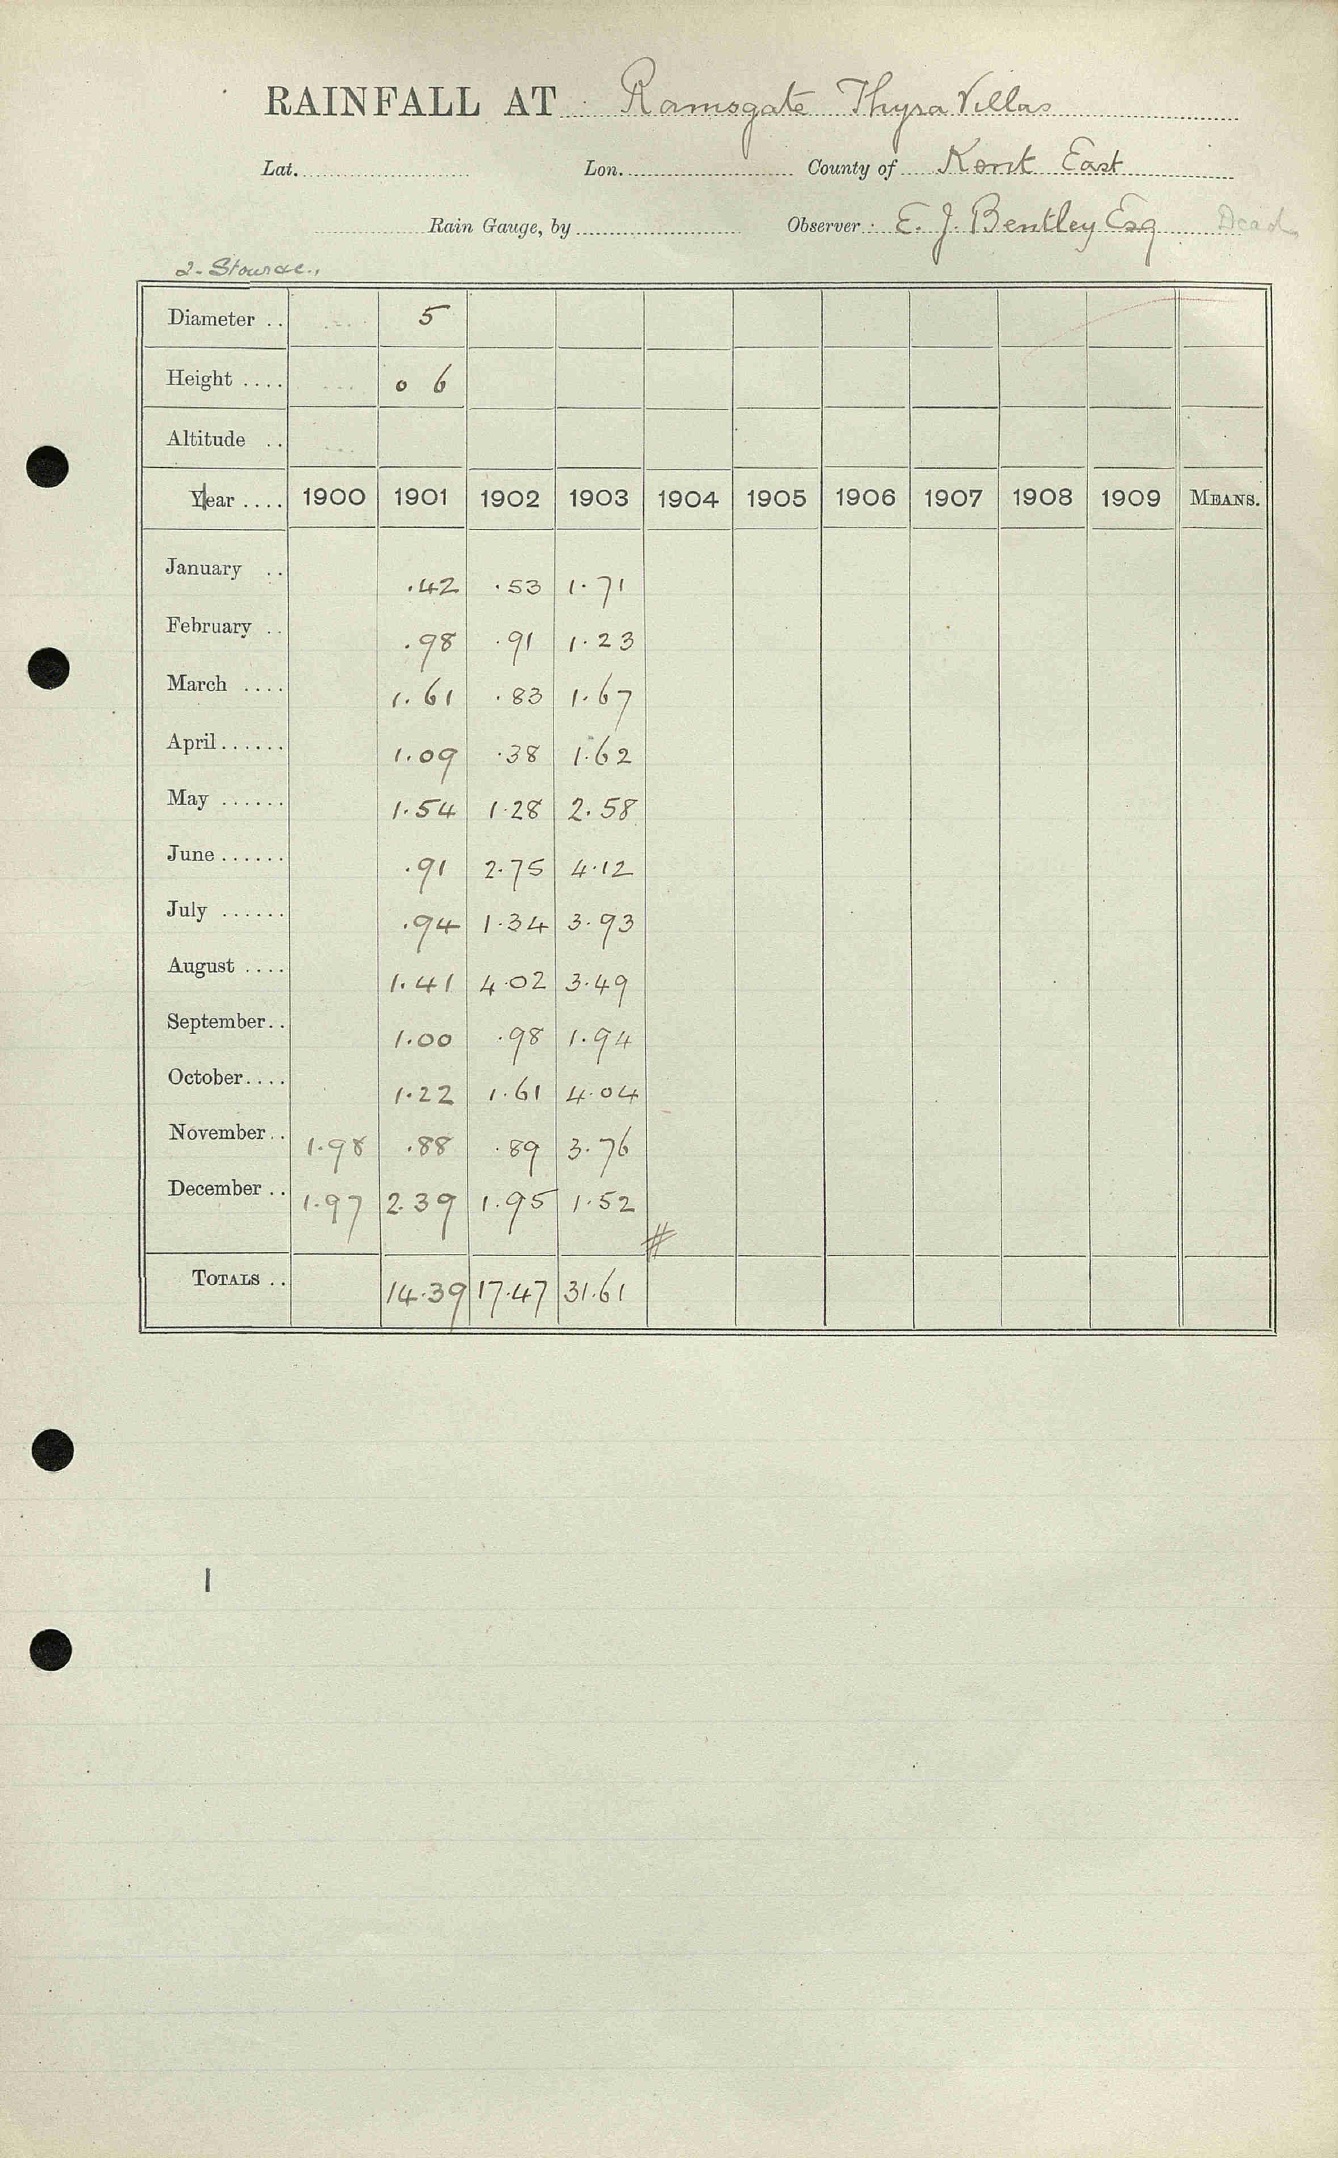 RAINFALL AT Ramsgate Thyra Villas
Lat. Lon. County of Kent East
Rain Gauge, by Observer: E. J. Bentley Esq Dead
Diameter .. 5
Height .... 0 6
Altitude ..
Year .... 1900 1901 1902 1903 1904 1905 1906 1907 1908 1909 MEANS.
January .. .42 .53 1.71
February .. .98 .91 1.23
March .... 1.61 .83 1.67
April...... 1.09 .38 1.62
May ...... 1.54 1.28 2.58
June ...... .91 2.75 4.12
July ...... .94 1.34 3.93
August .... 1.41 4.02 3.49
September.. 1.00 .98 1.94
October.... 1.22 1.61 4.04
November.. 1.98 .88 .89 3.76
December .. 1.97 2.39 1.95 1.52
#
TOTALS .. 14.39 17.47 31.61